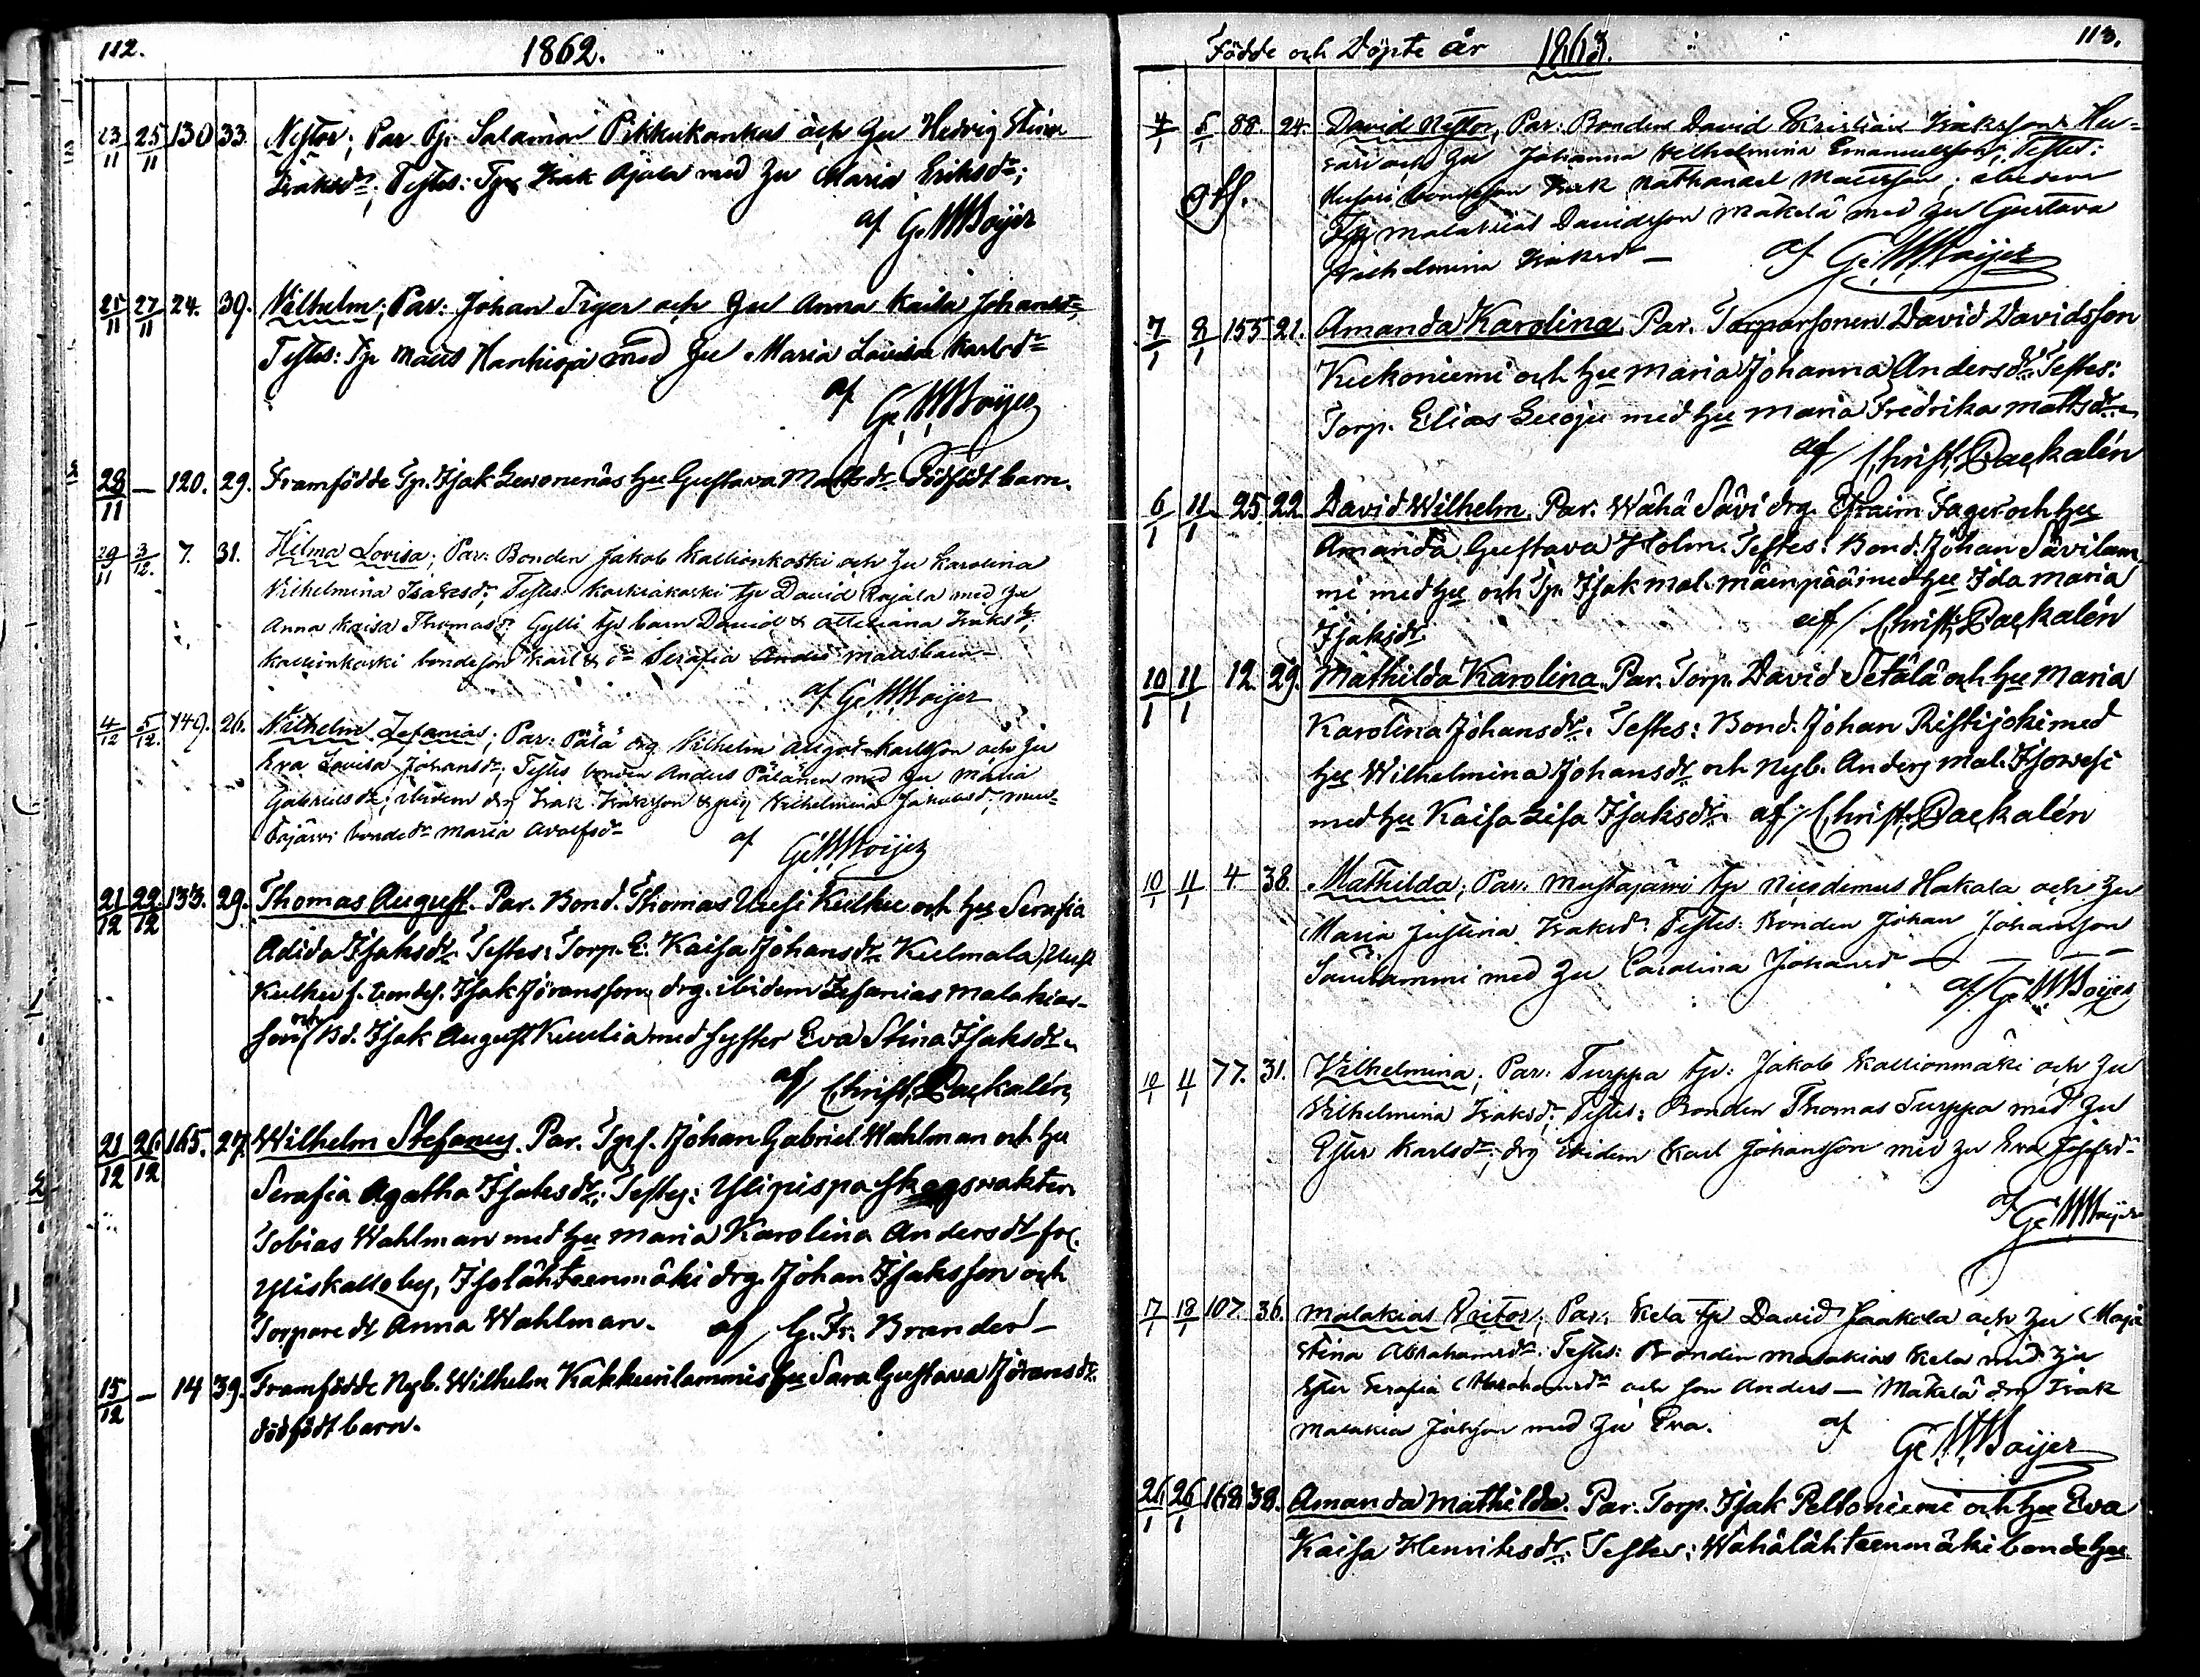 112.
1862.
23/11 25/11 130 33. Nestor; Par. Tp. Salamon Pikkukankas och Hu Hedvig Stina
Isaksdr; Testes: Tp Isak Ajala med Hu Maria Eriksdr;
af G. W. Boijer
25/11 27/11 24. 39. Vilhelm; Par: Johan Tiger och Hu Anna Kaisa Johansdr
Testes: Tp Matts med Hu Maria Lovisa Karlsdr
af G. W. Boijer
28/11 — 120. 29. Framfödde Tp. Isak hu Gustava Mattsdr Dödfödt barn.
29/11 3/12. 7. 31. Hilma Lovisa; Par: Bonden Jakob Kallionkoski och Hu Karolina
Vilhelmina Isaksdr; Testes: tp David Rajala med Hu
Anna Kaisa Thomasdr Gylli tp barn David & Isaksbn,
Kallionkoski bondeson Karl & dr Serafia Mattsbarn —
af G. W. Boijer
4/12 5/12. 149. 26. Vilhelm Zefanias; Par: Pälä drg Vilhelm August Karlsson och Hu
Eva Lovisa Johansdr; Testes bonden Anders Pälänen med Hu Maria
Gabrielsdr; ibidem drg Isak Isaksson & pig Vilhelmina Jakobsdr, Mus-
tajärvi bondedr Maria Adolfsdr
af G. W. Boijer
21/12 22/12 133. 29. Thomas August. Par. Bond. Thomas Uusi Kulku och hu Serafia
Adida Isaksdr. Testes: Torp. E. Kaisa Johansdr Kulmala, Uusi
Kulku f. bondes. Isak Göransson, drg. ibidem Zefanias Malakias-
son och Bd. Isak August med syster Eva Stina Isaksdr.
af Christ. Backalén
21/12 26/12 165. 27. Wilhelm Stefanus. Par. Tps. Johan Gabriel Wahlman och hu
Serafia Agatha Isaksdr. Testes: Ylipispa skogsvakter
Tobias Wahlman med hu Maria Karolina Andersdr fr.
Yliskallo by, Isolähteenmäki drg. Johan Isaksson och
Torparedr Anna Wahlman. af G. Fr. Brander —
15/12 — 14 39. Framfödde Nyb. Wilhelm Kakkurilammis hu Sara Gustava Göransdr.
dödfödt barn.
Födde och Döpte år 1863.
113.
4/1 5/1 88. 24. David Nestor, Par: Bonden David Kristian Isaksson Hu-
sari och Hu Johanna Vilhelmina Emanuelsdr; Testes:
Husari bondeson Isak Nathanael Mattsson; ibidem
Tp Malakias Davidsson Mäkelä med Hu Gustava
Vilhelmina Isaksdr — af G. W. Boijer
7/1 8/1 155 21. Amanda Karolina. Par. Torparsonen David Davidsson
Kiekoniemi och hu Maria Johanna Andersdr. Testes:
Torp. Elias med hu Maria Fredrika Mattsdr.
af Christ. Backalén
6/1 11/1 25. 22 David Wilhelm. Par: Wähä Sävi drg. Efraim Fager och hu
Amanda Gustava Holm. Testes: Bond. Johan Sävilam-
mi med hu och Tp. Isak Mal. Mäenpää med hu Ida Maria
Isaksdr. af Christ. Backalén
10/1 11/1 12. 29. Mathilda Karolina. Par. Torp. David Setälä och hu Maria
Karolina Johansdr. Testes: Bond. Johan Ristijoki med
hu Wilhelmina Johansdr och Nyb. Anders Mal. Isovesi
med hu Kaisa Lisa Isaksdr. af Christ. Backalén
10/1 11/1 4 38. Mathilda; Par: Mustajärvi tp Nicodemus Hakala och Hu
Maria Justina Isaksdr Testes: Bonden Johan Johansson
Savilammi med Hu Carolina Johansdr — — —
af G. W. Boijer
10/1 11/1 77. 31. Vilhelmina; Par: Turppa tp: Jakob Kallionmäki och Hu
Vilhelmina Isaksdr; Testes: Bonden Thomas Turppa med Hu
Ester Karlsdr; drg Ibidem Karl Johansson med Hu Eva Josefsdr
af G. W. Boijer
17/1 18/1 107. 36. Malakias Victor; Par: Kela tp David Jaakola och Hu Maja
Stina Abrahamsdr; Testes: Bonden Malakias Kela med Hu
Serafia Abrahamsdr och son Anders — Mäkelä drg Isak
Malakia med Hu Eva. af G. W. Boijer
26/1 26/1 168. 38. Amanda Mathilda. Par: Torp. Isak Peltoniemi och hu Eva
Kaisa Henriksdr. Testes: Wähälähteenmäki bonde hu